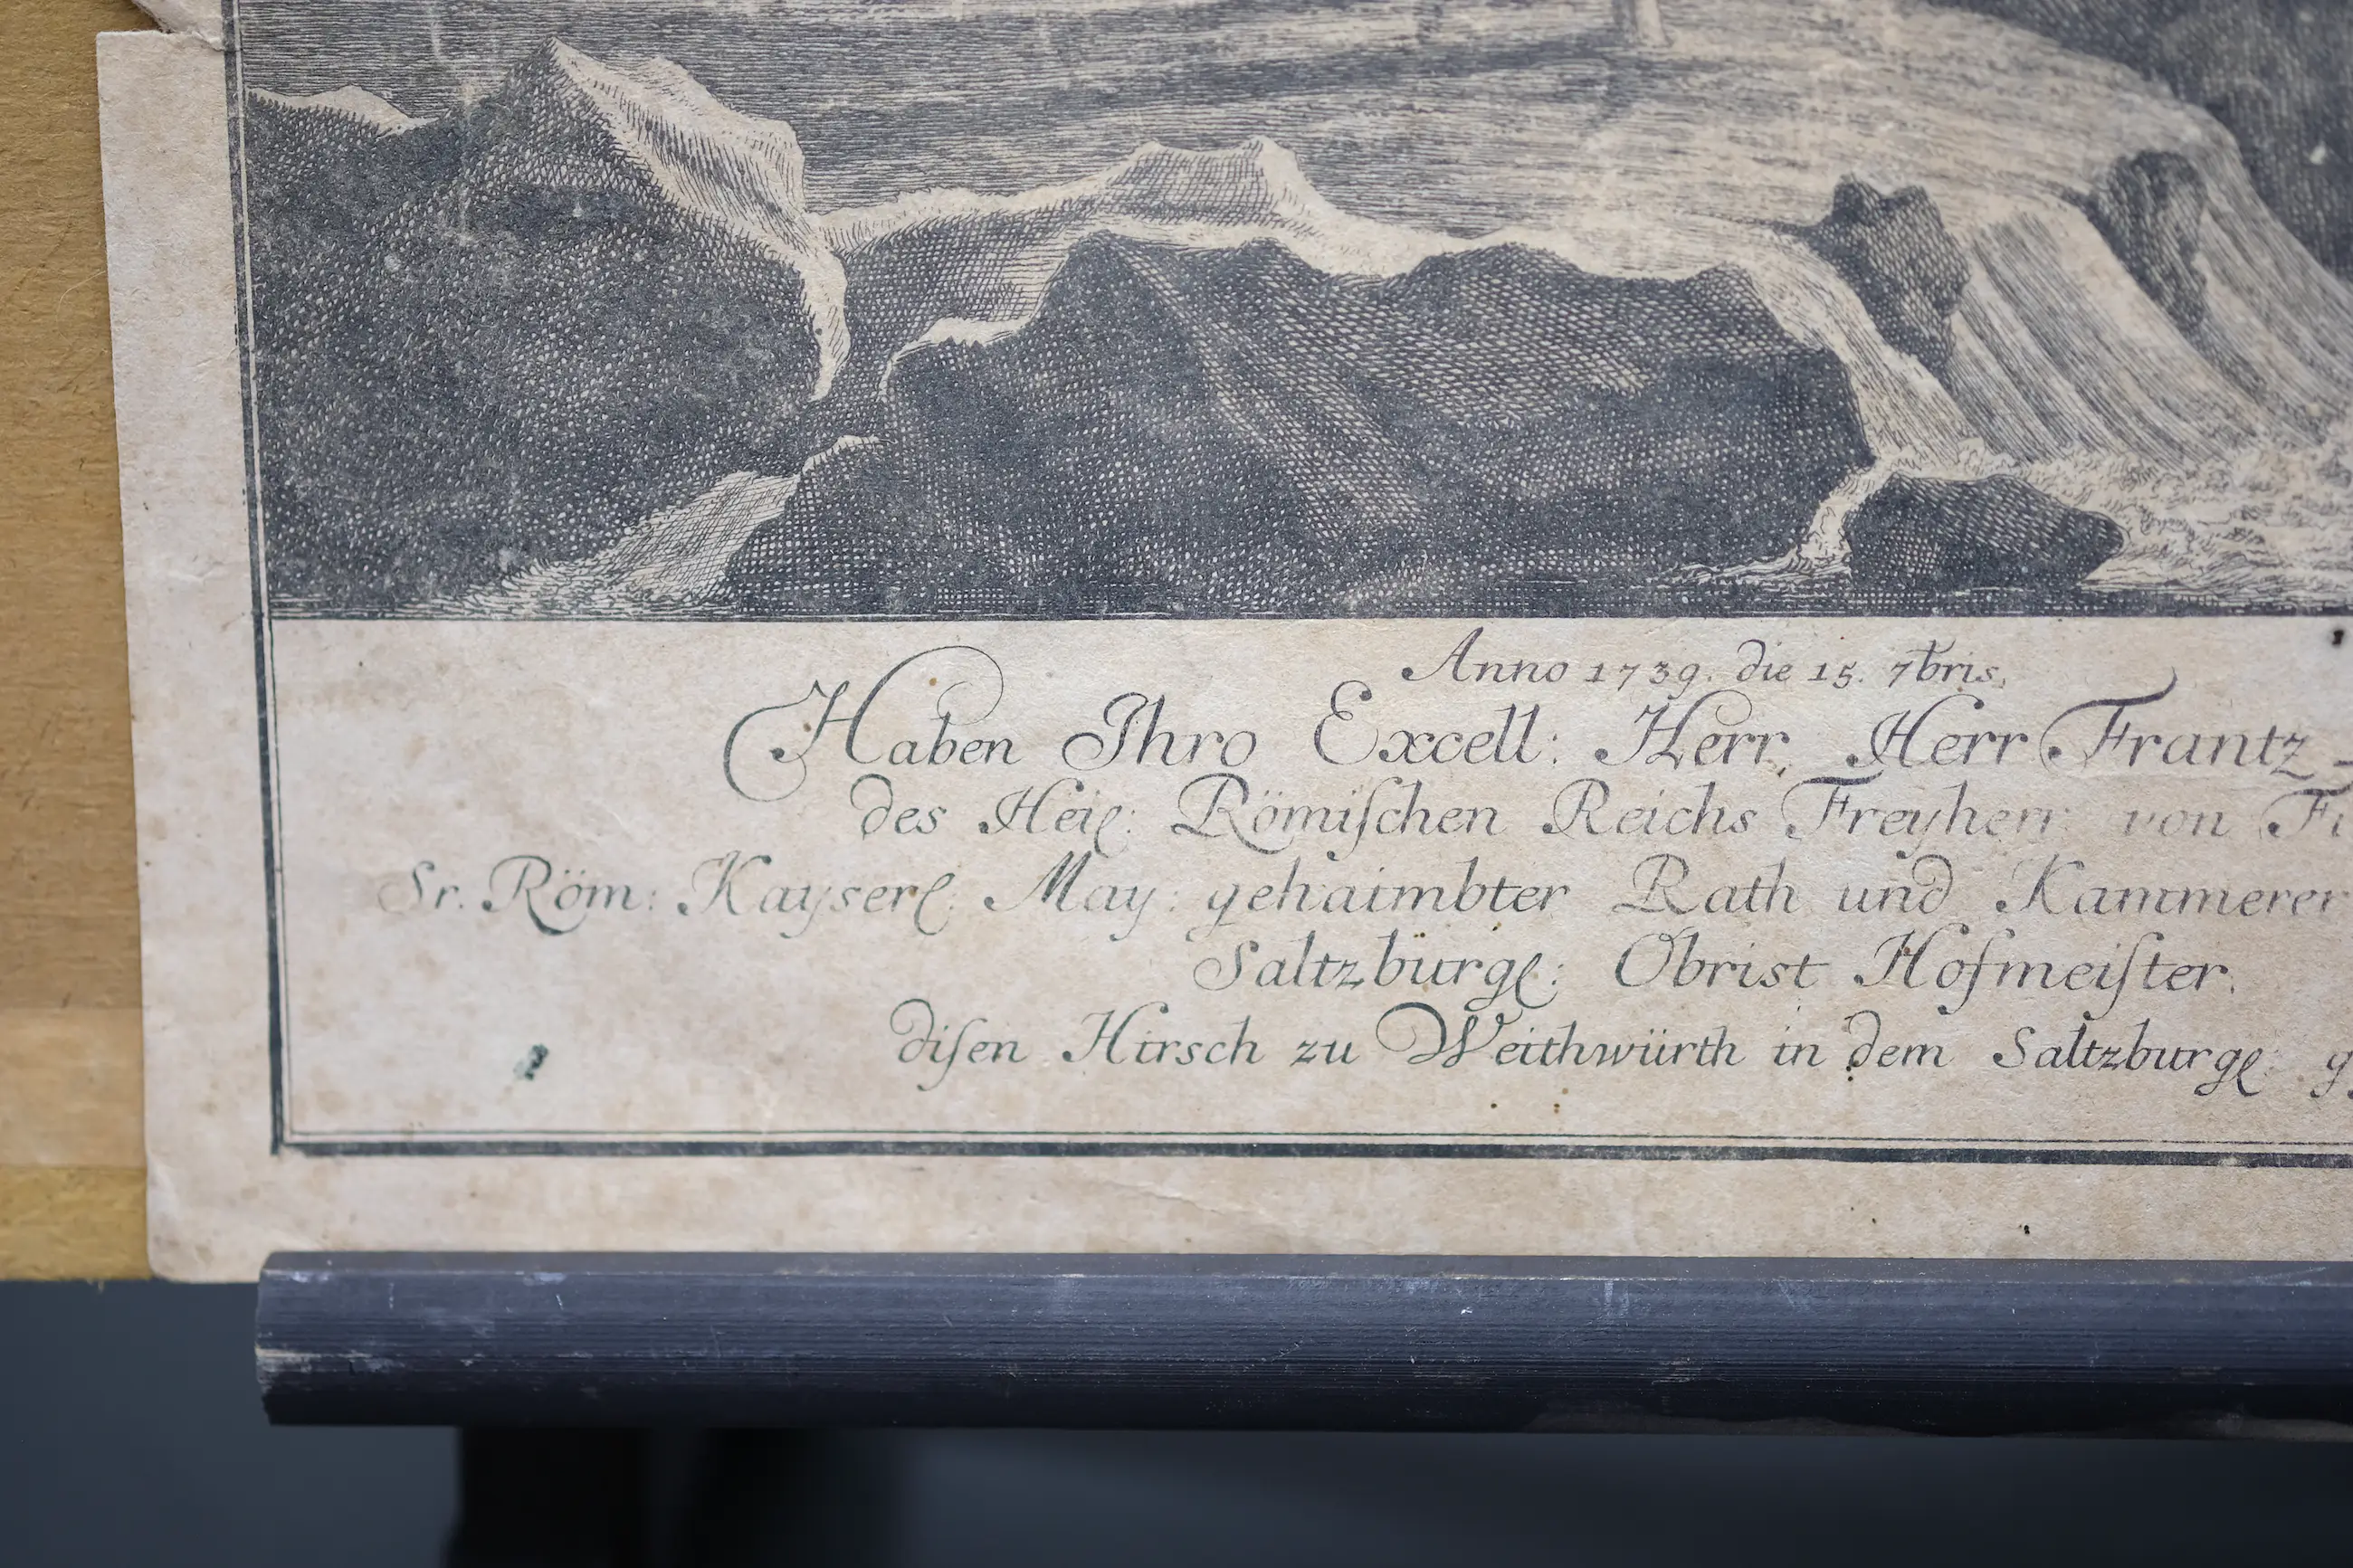 Anno 1739. die 15. 7bris.
Haben Ihro Excell: Herr, Herr Frantz
des Heil: Römiſchen Reichs Freyherr von
Sr. Röm: Kayserl: May: gehaimbter Rath und Kammerer
Saltzburgl: Obrist Hofmeiſter.
diſen Hirsch zu Weithwürth in dem Saltzburgl: